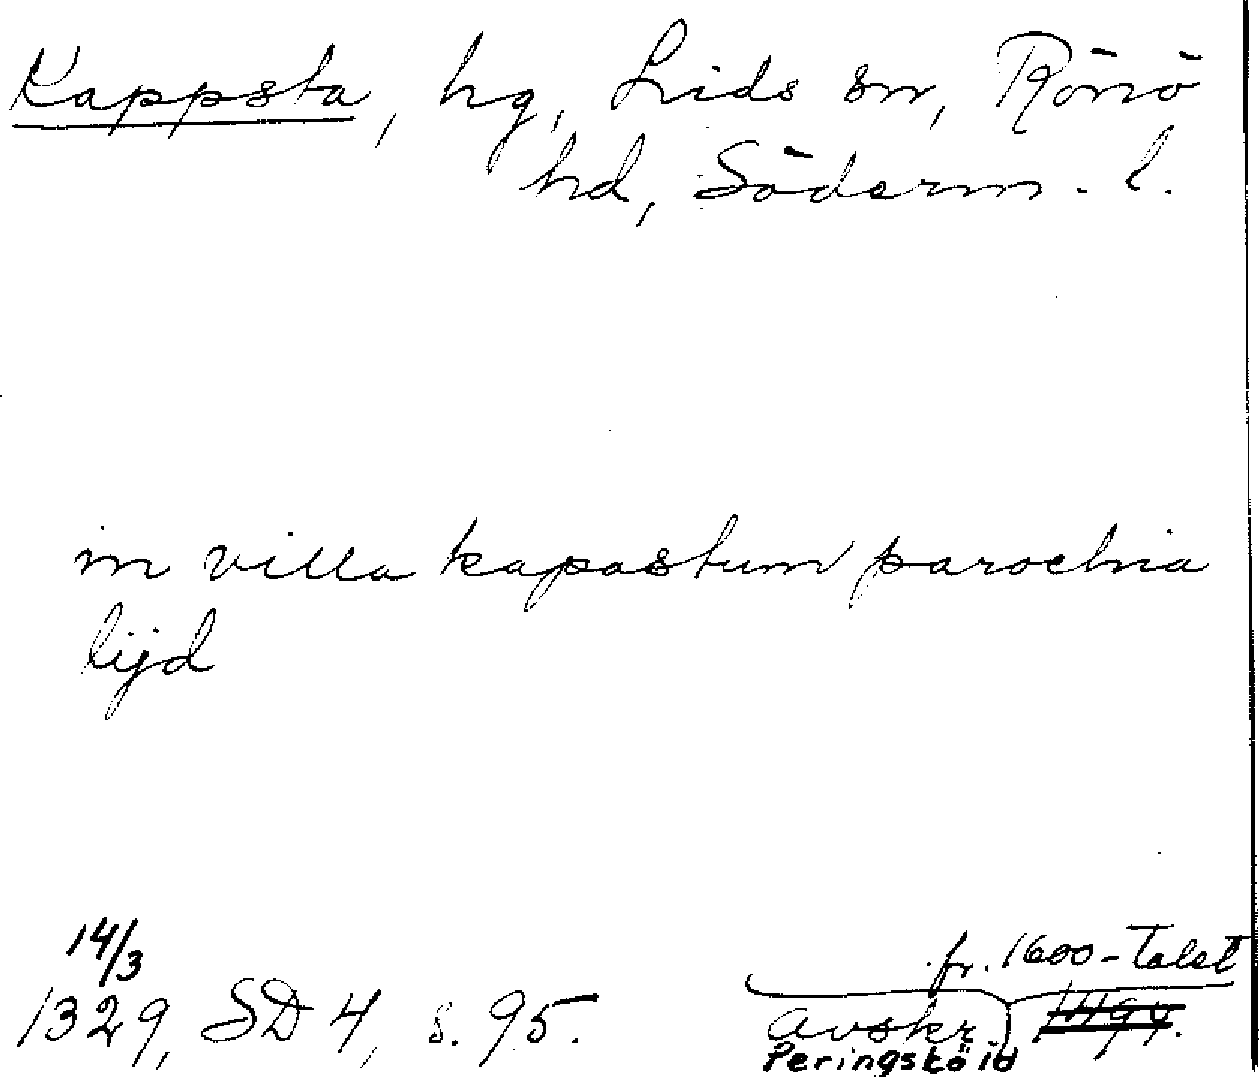 Kappsta, hg, Lids sn, Rönö
hd, Söderm. l.
in villa kapastum parochia
lijd
14/3
1329, SD 4, s. 95.
fr. 1600-talet
avskr.
Peringsköld